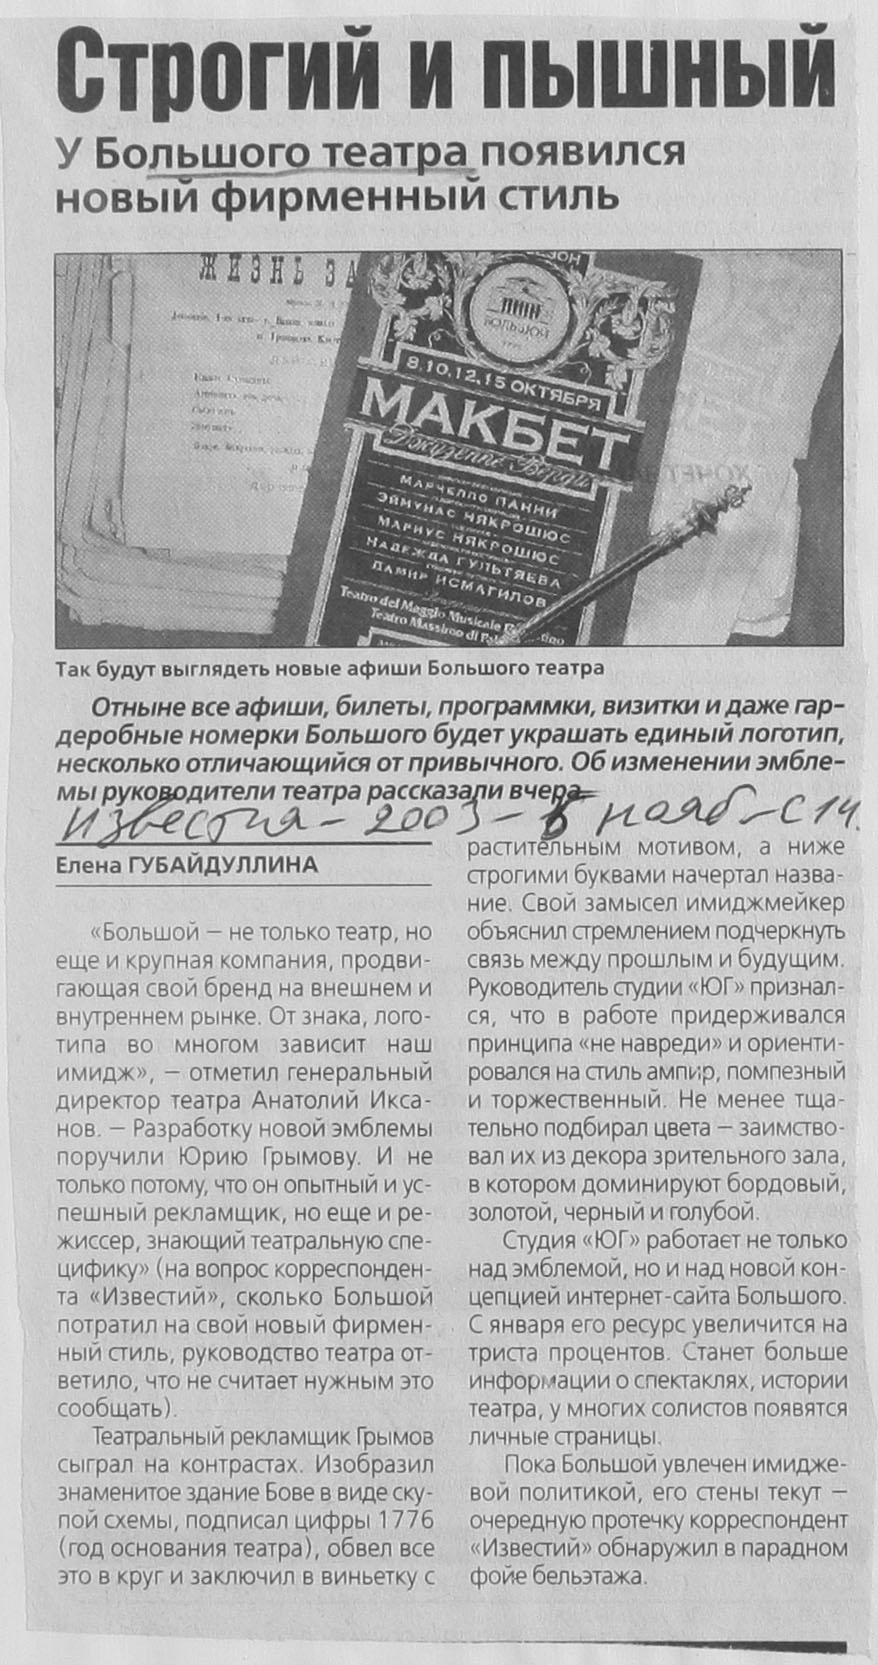 Строгий и пышный
У Большого театра появился
новый фирменный стиль
ЖИЗНЬ ЗА
БОЛЬШОЙ
8, 10, 12, 15 ОКТЯБРЯ
МАКБЕТ
Джузеппе Верди
МАРЧЕЛЛО ПАННИ
ЭЙМУНАС НЯКРОШЮС
МАРИУС НЯКРОШЮС
НАДЕЖДА ГУЛЬТЯЕВА
ДАМИР ИСМАГИЛОВ
Teatro del Maggio Musicale
Teatro Massimo di
Так будут выглядеть новые афиши Большого театра
Отныне все афиши, билеты, программки, визитки и даже гар-
деробные номерки Большого будет украшать единый логотип,
несколько отличающийся от привычного. Об изменении эмбле-
мы руководители театра рассказали вчера
Известия – 2003 – 6 нояб – С 14.
Елена ГУБАЙДУЛЛИНА
«Большой – не только театр, но
еще и крупная компания, продви-
гающая свой бренд на внешнем и
внутреннем рынке. От знака, лого-
типа во многом зависит наш
имидж», – отметил генеральный
директор театра Анатолий Икса-
нов. – Разработку новой эмблемы
поручили Юрию Грымову. И не
только потому, что он опытный и ус-
пешный рекламщик, но еще и ре-
жиссер, знающий театральную спе-
цифику» (на вопрос корреспонден-
та «Известий», сколько Большой
потратил на свой новый фирмен-
ный стиль, руководство театра от-
ветило, что не считает нужным это
сообщать).
Театральный рекламщик Грымов
сыграл на контрастах. Изобразил
знаменитое здание Бове в виде ску-
пой схемы, подписал цифры 1776
(год основания театра), обвел все
это в круг и заключил в виньетку с
растительным мотивом, а ниже
строгими буквами начертал назва-
ние. Свой замысел имиджмейкер
объяснил стремлением подчеркнуть
связь между прошлым и будущим.
Руководитель студии «ЮГ» признал-
ся, что в работе придерживался
принципа «не навреди» и ориенти-
ровался на стиль ампир, помпезный
и торжественный. Не менее тща-
тельно подбирал цвета – заимство-
вал их из декора зрительного зала,
в котором доминируют бордовый,
золотой, черный и голубой.
Студия «ЮГ» работает не только
над эмблемой, но и над новой кон-
цепцией интернет-сайта Большого.
С января его ресурс увеличится на
триста процентов. Станет больше
информации о спектаклях, истории
театра, у многих солистов появятся
личные страницы.
Пока Большой увлечен имидже-
вой политикой, его стены текут –
очередную протечку корреспондент
«Известий» обнаружил в парадном
фойе бельэтажа.